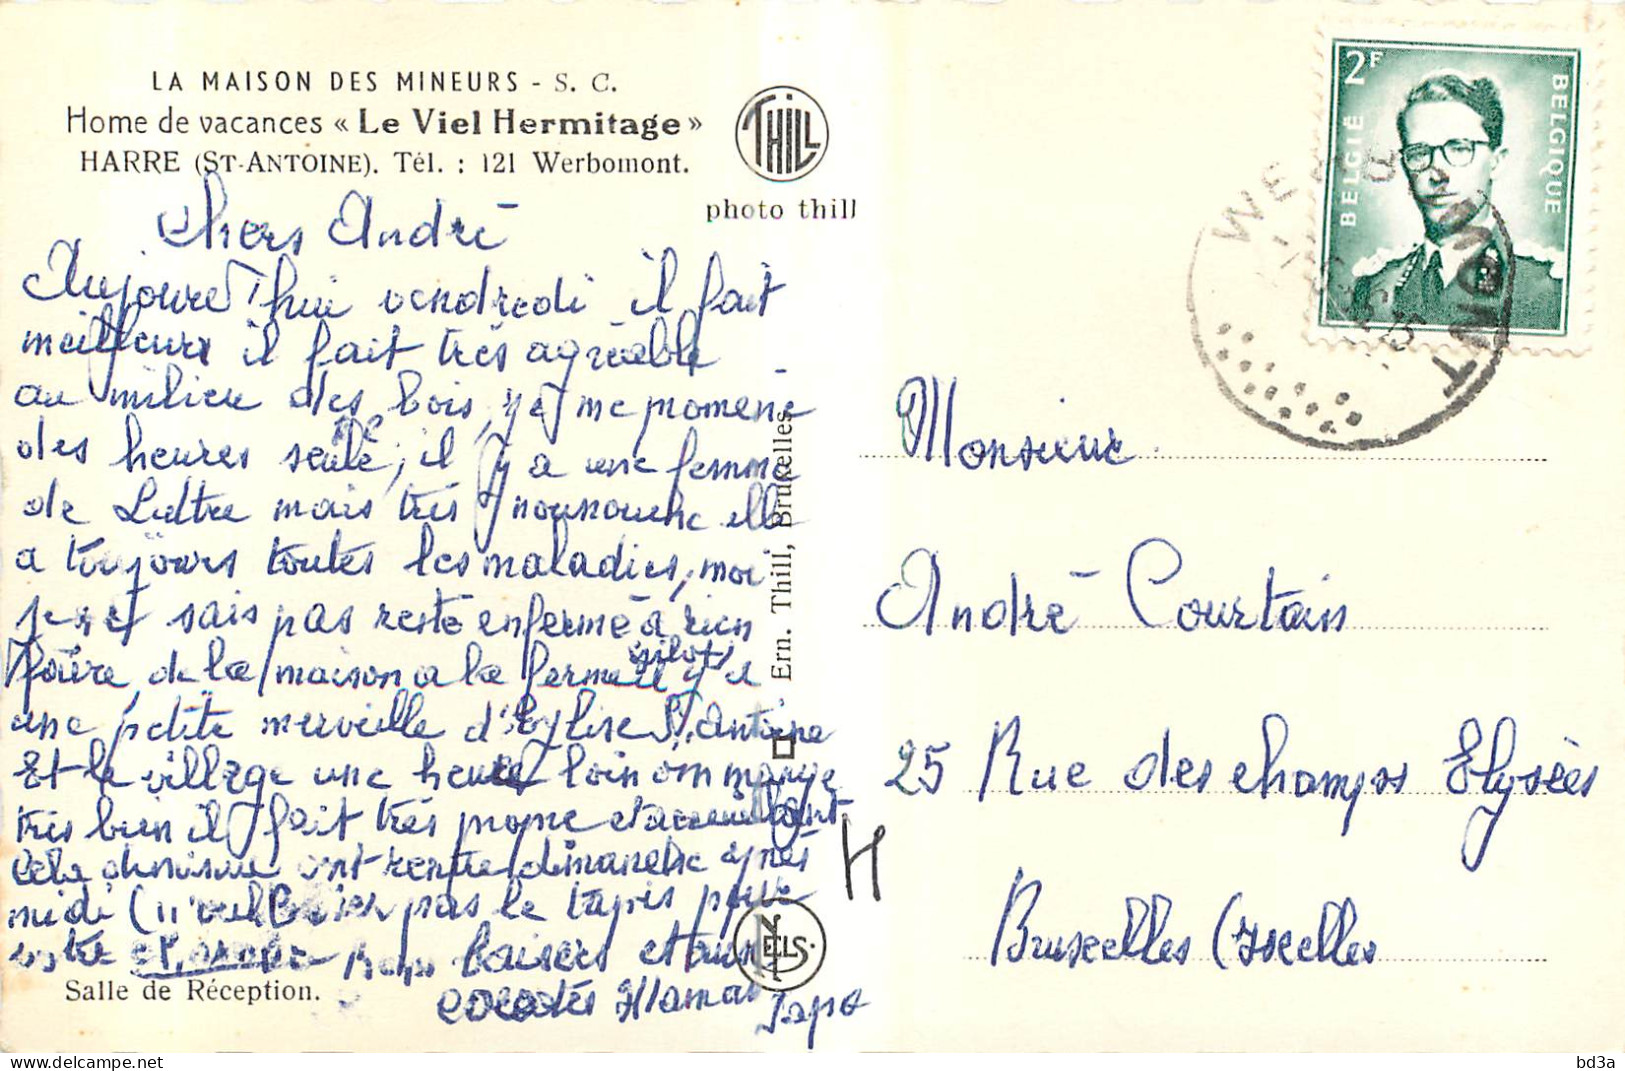 LA MAISON DES MINEURS - S. C.
Home de vacances « Le Viel Hermitage »
HARRE (ST-ANTOINE). Tél. : 121 Werbomont.
THILL
photo thill
2F
BELGIË
BELGIQUE
WERBOMONT
chers André
Aujourd'hui vendredi il fait
meilleur il fait très agréable
au milieu des bois, me promène
des heures seule, il y a une femme
de mais très elle
a toujours toutes les maladies, moi
je ne sais pas resté enfermé à rien
foûre, de la maison a la ferme y a
une petite merveille d'Eglise St Antoine
Et le village une heure loin on mange
très bien il fait très propre et
ont rentre dimanche après
midi ( pas le tapis pour
votre baisers et
Mamas
Papa
Salle de Réception.
Ern. Thill, Bruxelles
H
Monsieur
André Courtain
25 Rue des champs Elysèes
Bruxelles (Ixelles
bd3a